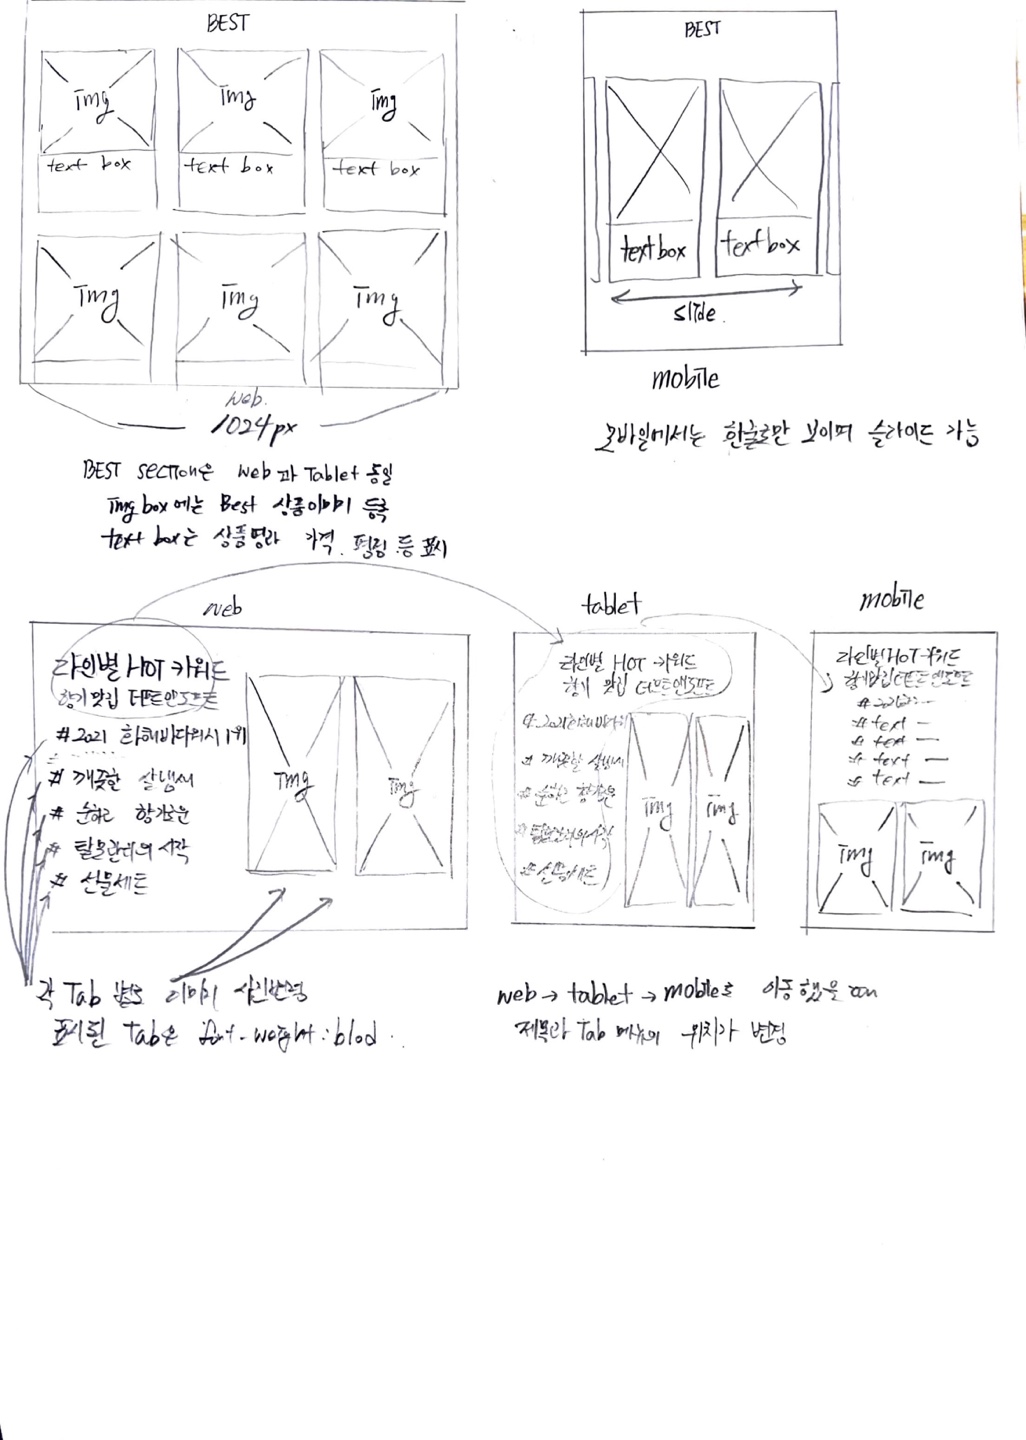 BEST
Img
Img
Img
text box
text box
text box
Img
Img
Img
web.
1024px
BEST section은 web과 Tablet 동일
Img box에는 Best 상품이미지 등록
text box는 상품명과 가격, 평점 등 표시
BEST
text box
text box
slide.
mobile
모바일에서는 한줄로만 보이며 슬라이드 가능
web
라인별 HOT 키워드
향기 맛집 더프트앤도프트
#2021 화해 바디워시 1위
# 깨끗한 살냄새
# 순하고 향기로운
# 탈모관리의 시작
# 선물세트
Img
Img
각 Tab 별로 이미지
표시된 Tab은 font-weight:blod.
tablet
라인별 HOT 키워드
향기 맛집 더프트앤도프트
# 2021 화해 바디워
# 깨끗한 살냄새
# 순하고 향기로운
# 탈모관리의 시작
# 선물세트
Img
Img
mobile
라인별 HOT 키워드
향기맛집 더프트앤도프트
# 2021
# text
# text
# text
# text
Img
Img
web → tablet → mobile로 이동했을 때
제목과 Tab 메뉴의 위치가 변경